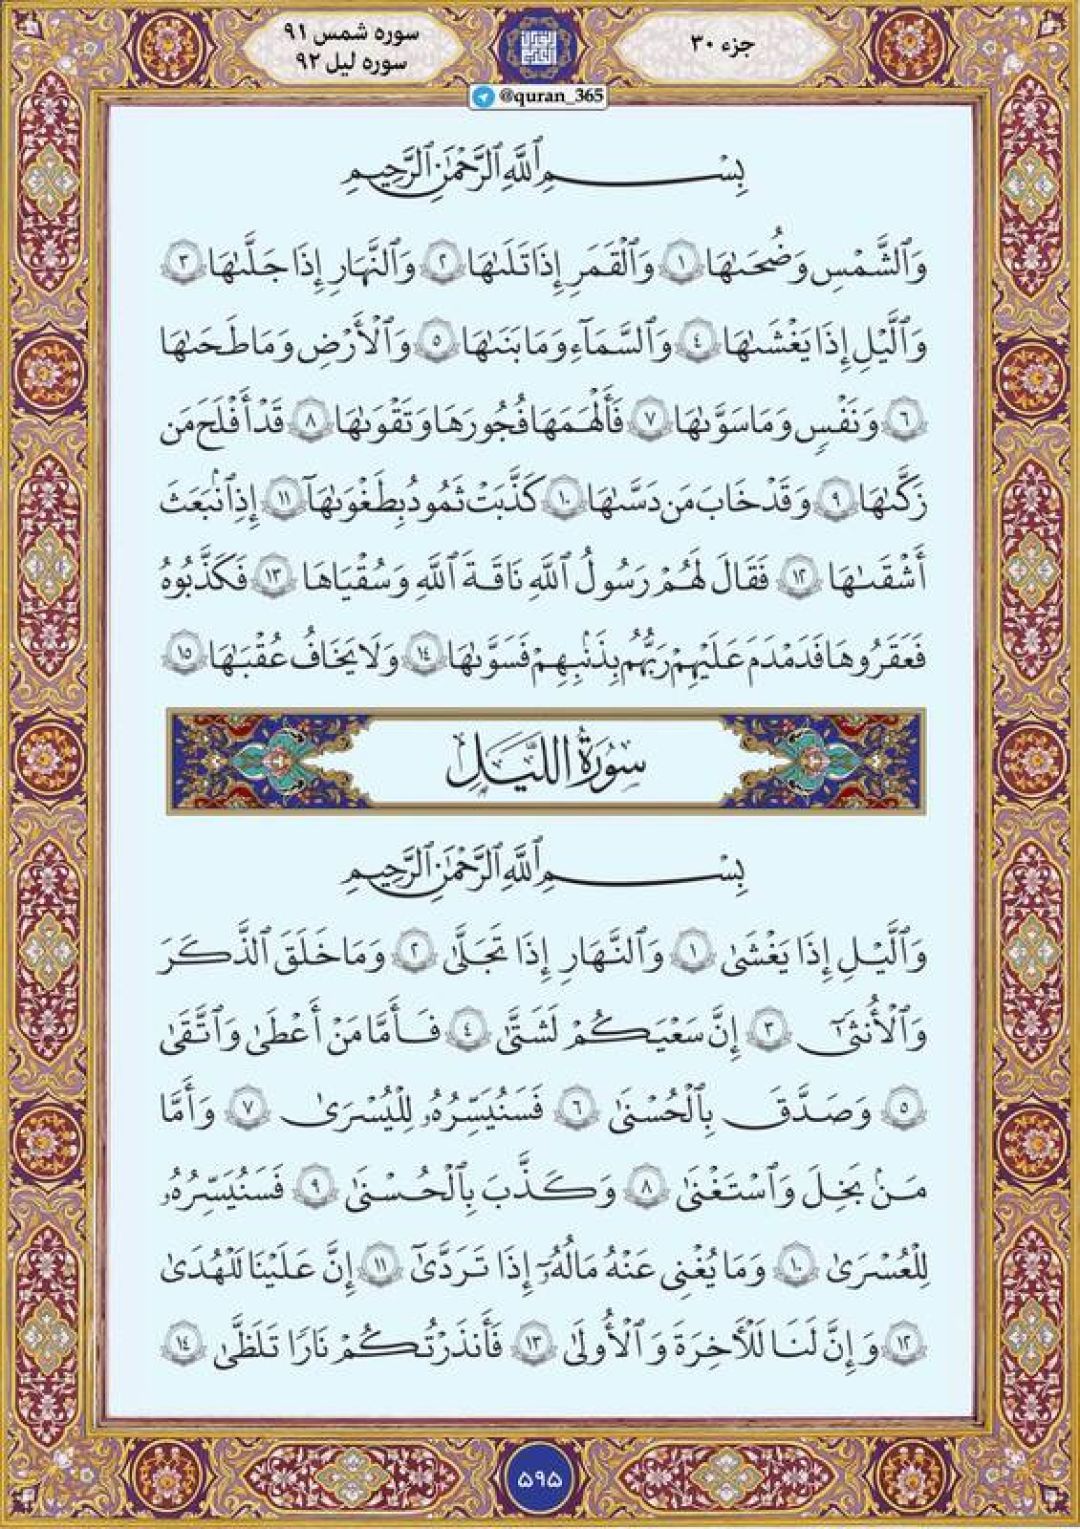 جزء ۳۰
سوره شمس ۹۱
سوره لیل ۹۲
@quran_365
بِسْمِ ٱللَّهِ ٱلرَّحْمَٰنِ ٱلرَّحِيمِ
وَٱلشَّمْسِ وَضُحَىٰهَا ١ وَٱلْقَمَرِ إِذَا تَلَىٰهَا ٢ وَٱلنَّهَارِ إِذَا جَلَّىٰهَا ٣
وَٱلَّيْلِ إِذَا يَغْشَىٰهَا ٤ وَٱلسَّمَآءِ وَمَا بَنَىٰهَا ٥ وَٱلْأَرْضِ وَمَا طَحَىٰهَا
٦ وَنَفْسٍ وَمَا سَوَّىٰهَا ٧ فَأَلْهَمَهَا فُجُورَهَا وَتَقْوَىٰهَا ٨ قَدْ أَفْلَحَ مَن
زَكَّىٰهَا ٩ وَقَدْ خَابَ مَن دَسَّىٰهَا ١٠ كَذَّبَتْ ثَمُودُ بِطَغْوَىٰهَآ ١١ إِذِ ٱنۢبَعَثَ
أَشْقَىٰهَا ١٢ فَقَالَ لَهُمْ رَسُولُ ٱللَّهِ نَاقَةَ ٱللَّهِ وَسُقْيَاهَا ١٣ فَكَذَّبُوهُ
فَعَقَرُوهَا فَدَمْدَمَ عَلَيْهِمْ رَبُّهُم بِذَنۢبِهِمْ فَسَوَّىٰهَا ١٤ وَلَا يَخَافُ عُقْبَٰهَا ١٥
سُورَةُ اللَّيْلِ
بِسْمِ ٱللَّهِ ٱلرَّحْمَٰنِ ٱلرَّحِيمِ
وَٱلَّيْلِ إِذَا يَغْشَىٰ ١ وَٱلنَّهَارِ إِذَا تَجَلَّىٰ ٢ وَمَا خَلَقَ ٱلذَّكَرَ
وَٱلْأُنثَىٰٓ ٣ إِنَّ سَعْيَكُمْ لَشَتَّىٰ ٤ فَأَمَّا مَنْ أَعْطَىٰ وَٱتَّقَىٰ
٥ وَصَدَّقَ بِٱلْحُسْنَىٰ ٦ فَسَنُيَسِّرُهُۥ لِلْيُسْرَىٰ ٧ وَأَمَّا
مَنۢ بَخِلَ وَٱسْتَغْنَىٰ ٨ وَكَذَّبَ بِٱلْحُسْنَىٰ ٩ فَسَنُيَسِّرُهُۥ
لِلْعُسْرَىٰ ١٠ وَمَا يُغْنِى عَنْهُ مَالُهُۥٓ إِذَا تَرَدَّىٰٓ ١١ إِنَّ عَلَيْنَا لَلْهُدَىٰ
١٢ وَإِنَّ لَنَا لَلْءَاخِرَةَ وَٱلْأُولَىٰ ١٣ فَأَنذَرْتُكُمْ نَارًا تَلَظَّىٰ ١٤
۵۹۵